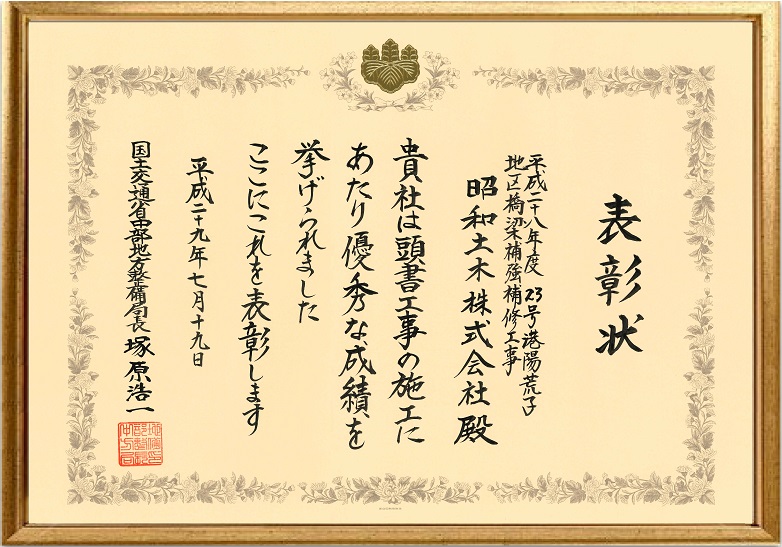 表彰状
平成二十八年度 23号港陽荒子
地区橋梁補強補修工事
昭和土木株式会社殿
貴社は頭書工事の施工に
あたり優秀な成績を
挙げられました
ここにこれを表彰します
平成二十九年七月十九日
国土交通省中部地方整備局長 塚原浩一